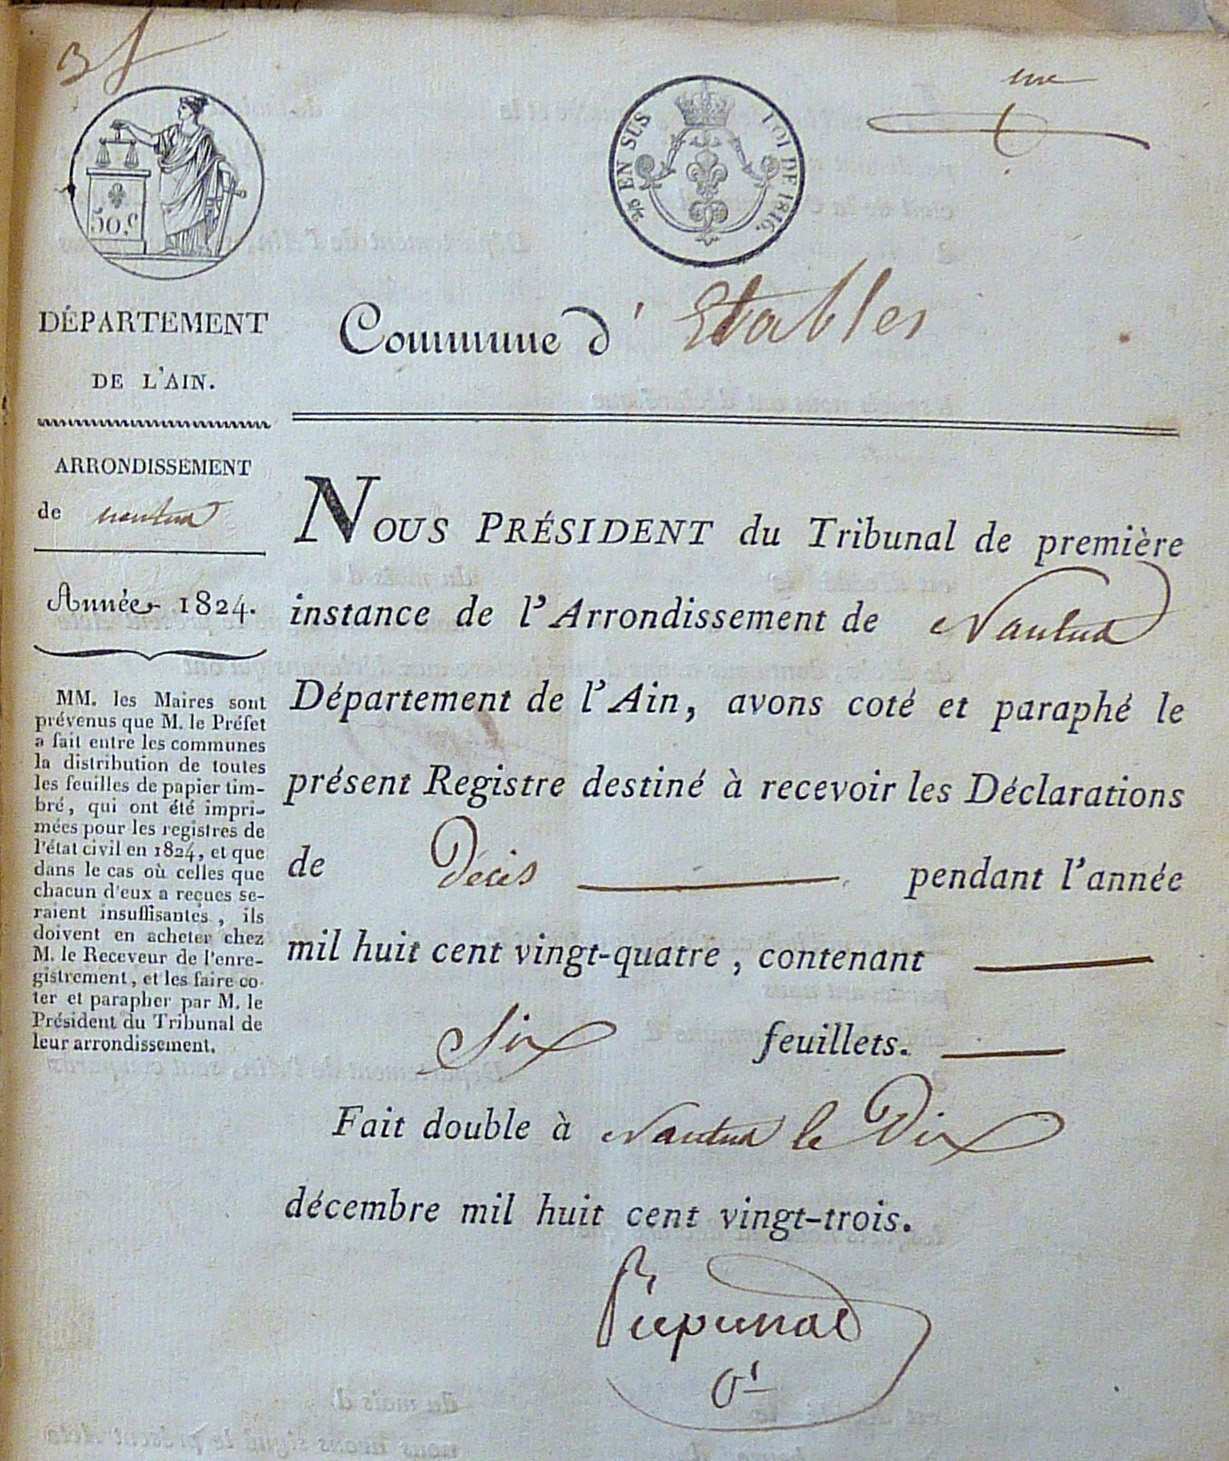 50 C.
EN SUS
LOI DE 1816.
DÉPARTEMENT
DE L'AIN.
Commune d' Etables
ARRONDISSEMENT
de nantua
Année 1824.
MM. les Maires sont
prévenus que M. le Préfet
a fait entre les communes
la distribution de toutes
les feuilles de papier tim-
bré, qui ont été impri-
mées pour les registres de
l'état civil en 1824, et que
dans le cas où celles que
chacun d'eux a reçues se-
raient insuffisantes, ils
doivent en acheter chez
M. le Receveur de l'enre-
gistrement, et les faire co-
ter et parapher par M. le
Président du Tribunal de
leur arrondissement.
NOUS PRÉSIDENT du Tribunal de première
instance de l'Arrondissement de Nantua
Département de l'Ain, avons coté et paraphé le
présent Registre destiné à recevoir les Déclarations
de Décès pendant l'année
mil huit cent vingt-quatre, contenant
Six feuillets.
Fait double à Nantua le Dix
décembre mil huit cent vingt-trois.